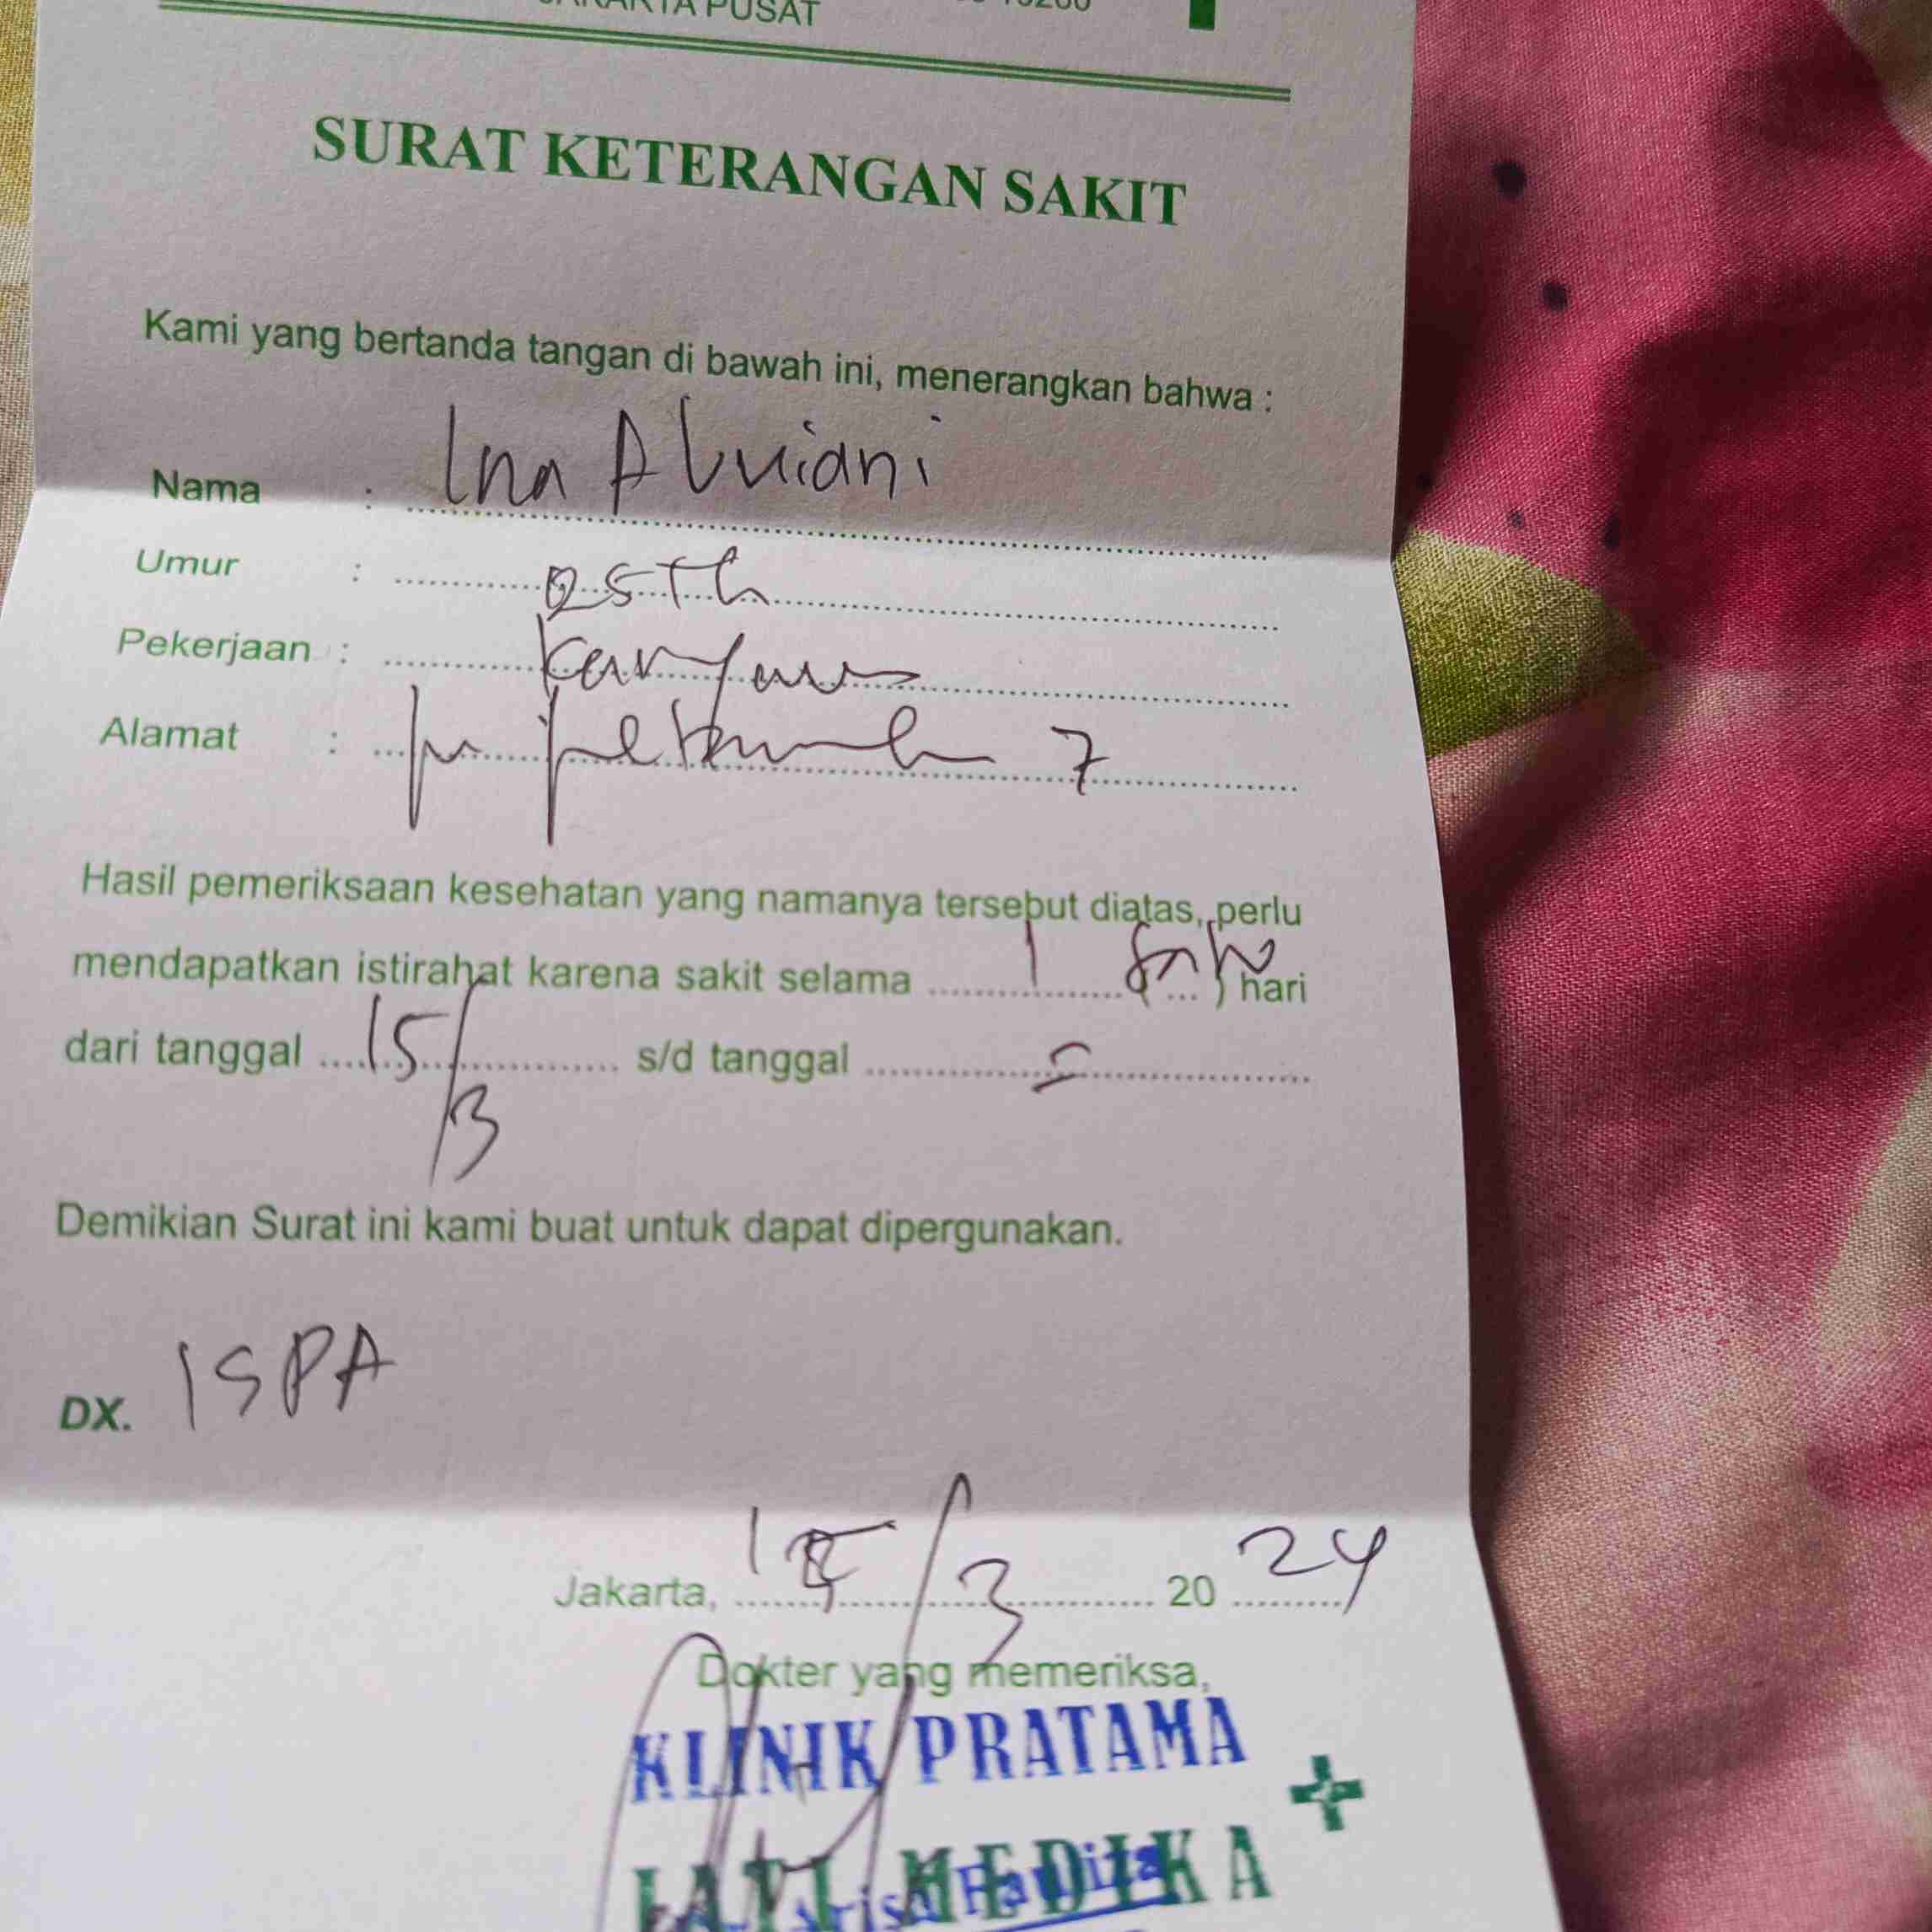 JAKARTA PUSAT
SURAT KETERANGAN SAKIT
Kami yang bertanda tangan di bawah ini, menerangkan bahwa :
Nama : Ina Alviani
Umur : 25 Th
Pekerjaan : Karyawan
Alamat : 7
Hasil pemeriksaan kesehatan yang namanya tersebut diatas, perlu
mendapatkan istirahat karena sakit selama 1 (satu) hari
dari tanggal 15/3 s/d tanggal
Demikian Surat ini kami buat untuk dapat dipergunakan.
DX. ISPA
Jakarta, 15/3 2024
Dokter yang memeriksa,
KLINIK PRATAMA
JATI MEDIKA